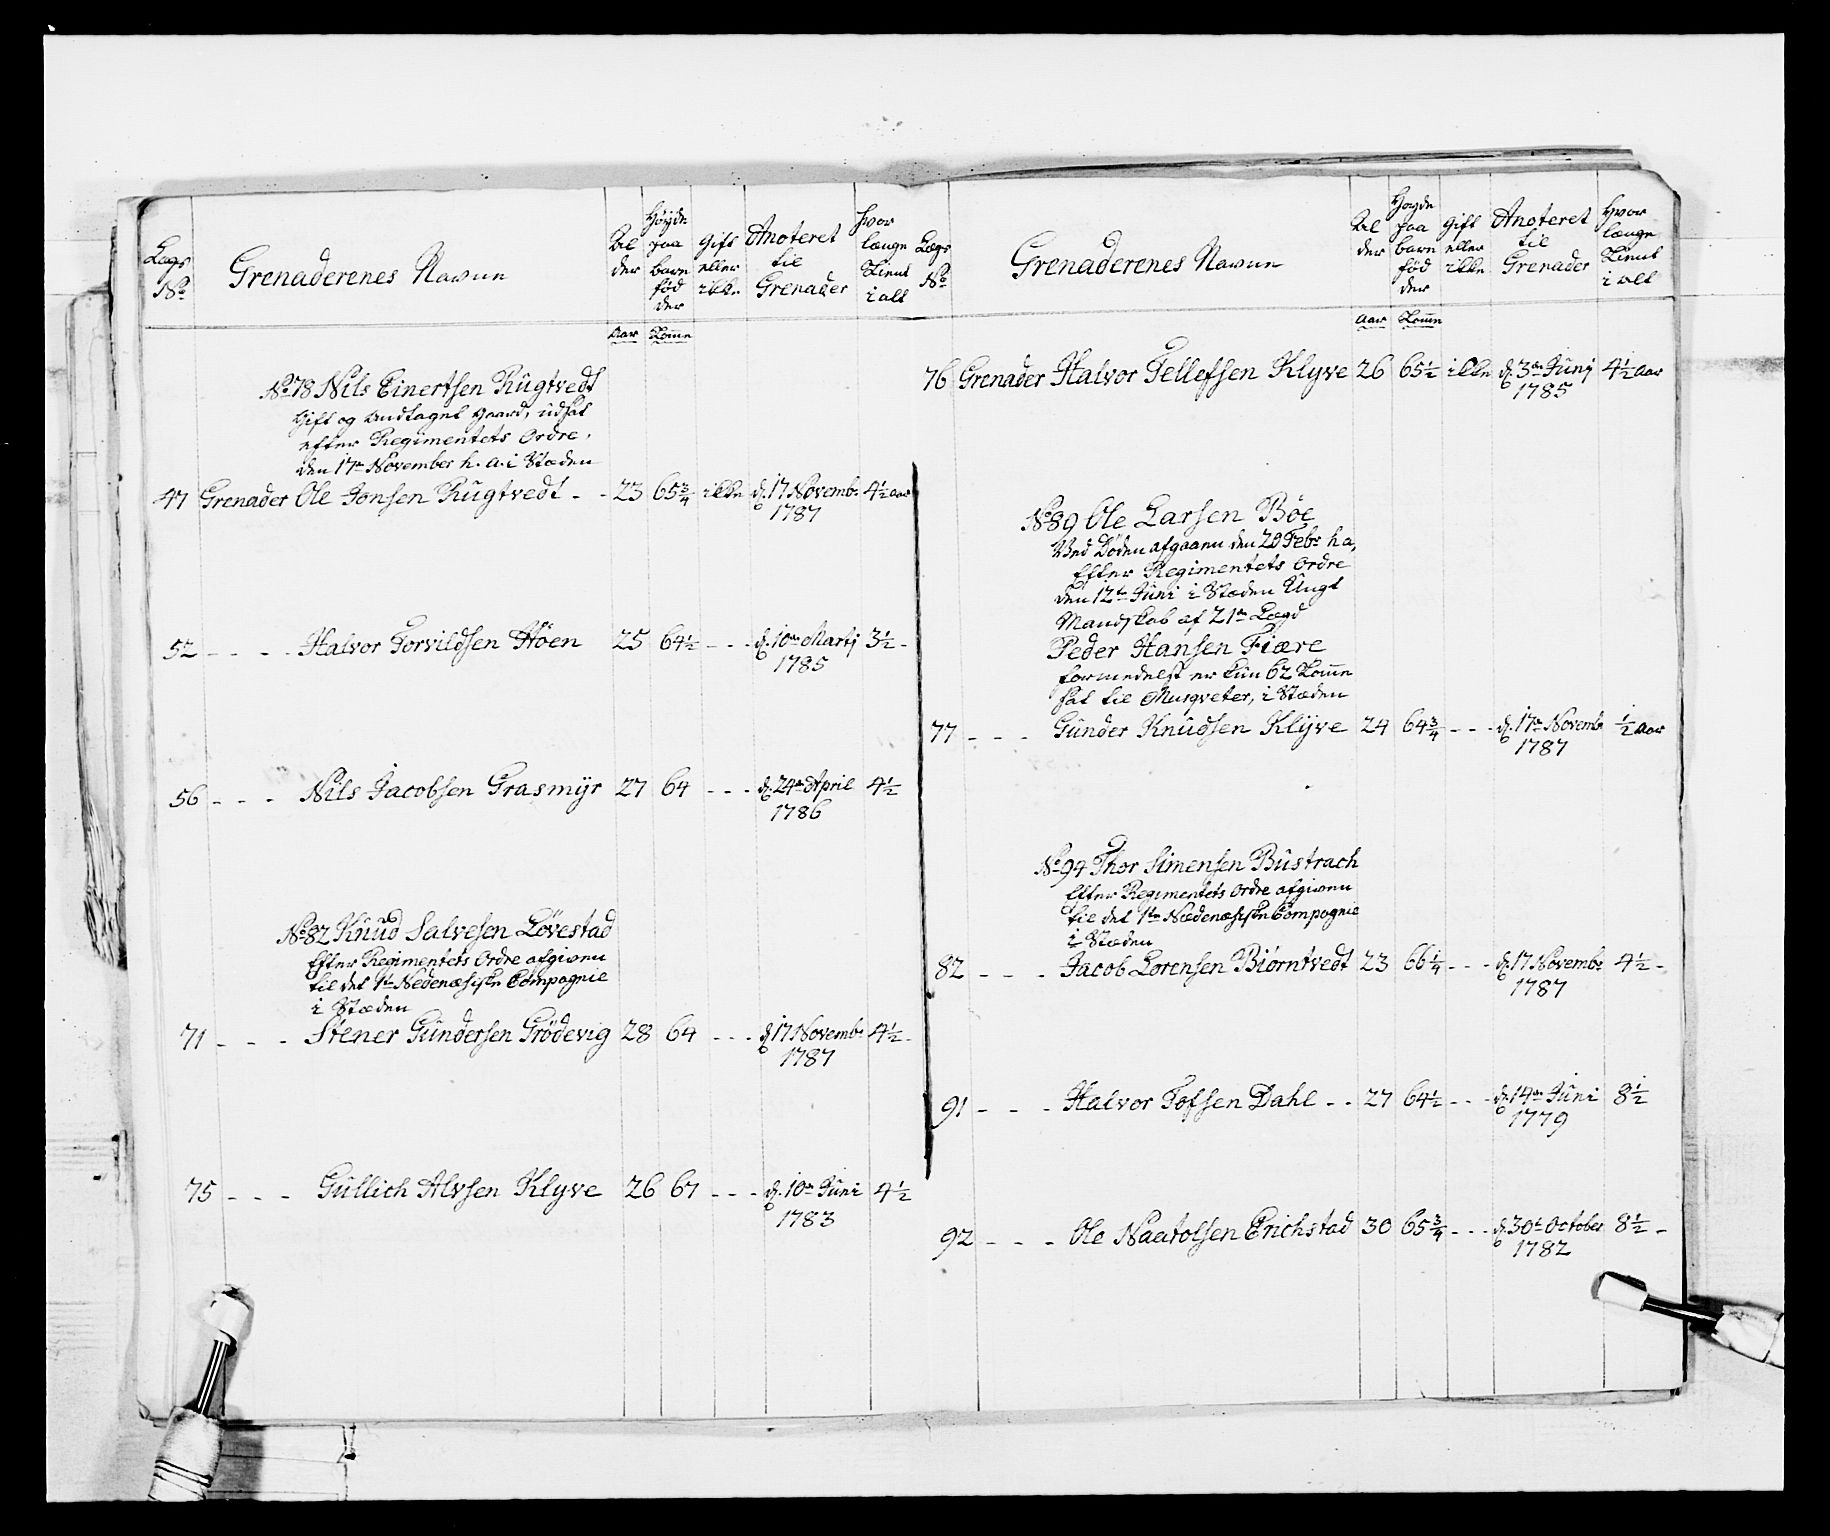 Lægs No
Grenaderenes Navne
Alder
Høyde paa bare fødder
Gift eller ikke
Anoteret til Grenader
Hvor længe Tient i alt
Aar Tomme
No 78 Nils Einertsen Rugtvedt
Gift og Andtaget Gaard, udsat
efter Regimentets Ordre,
den 17de November h. a. i Stæden
47 Grenader Ole Jonsen Rugtvedt - - 23 65 3/4 ikke d. 17 Novembr 4 1/2 aar
1787
52 - - - - Halvor Torvildsen Høen 25 64 1/2 - - - d. 10de Martj 3 1/2 -
1785
56 - - - Nils Jacobsen Grasmyr 27 64 - - - d. 24de April 4 1/2
1786
No 82 Knud Salvesen Løvestad
Efter Regimentets Ordre afgiven
til det 1te Nedenæsiske Compagnie
i Stæden
71 - - - Stener Gundersen Grødevig 28 64 - - - d 17 Novembr 4 1/2 -
1787
75 - - - Gullich Alvsen Klyve 26 67 - - - d. 10de Juni 4 1/2
1783
Lægs No
Grenaderenes Navne
Alder
Høyde paa bare fødder
Gift eller ikke
Anoteret til Grenader
Hvor længe Tient i alt
Aar Tomm
76 Grenader Halvor Tellefsen Klyve 26 65 1/2 ikke d. 3de Junj 4 1/2 aar
1785
No 89 Ole Larsen Bøe
Ved Døden afgaaen den 20 Febr h a,
Efter Regimentets Ordre
den 12te Juni i Stæden Ungt
Mandskab af 21de Lægd
Peder Hansen Fiære
formedelst er kun 62 Tomme
sat til Musqveter, i Stæden
77 - - - Gunder Knudsen Klyve 24 64 3/4 - - - d. 17de Novembr 1/2 aar
1787
No 94 Thor Simensen Bustrach
Efter Regimentets Ordre afgiven
til det 1te Nædenæsiske Compagnie
i Stæden
82 - - - Jacob Lorensen Biørntvedt 23 66 1/4 - - - d. 17 Novembr 4 1/2 -
1787
91 - - - Halvor Tofsen Dahl - - 27 64 1/2 - - - d. 14de Juni 8 1/2
1779
92 - - - Ole Naatolsen Erichstad 30 65 3/4 - - - d. 30te October 8 1/2 -
1782